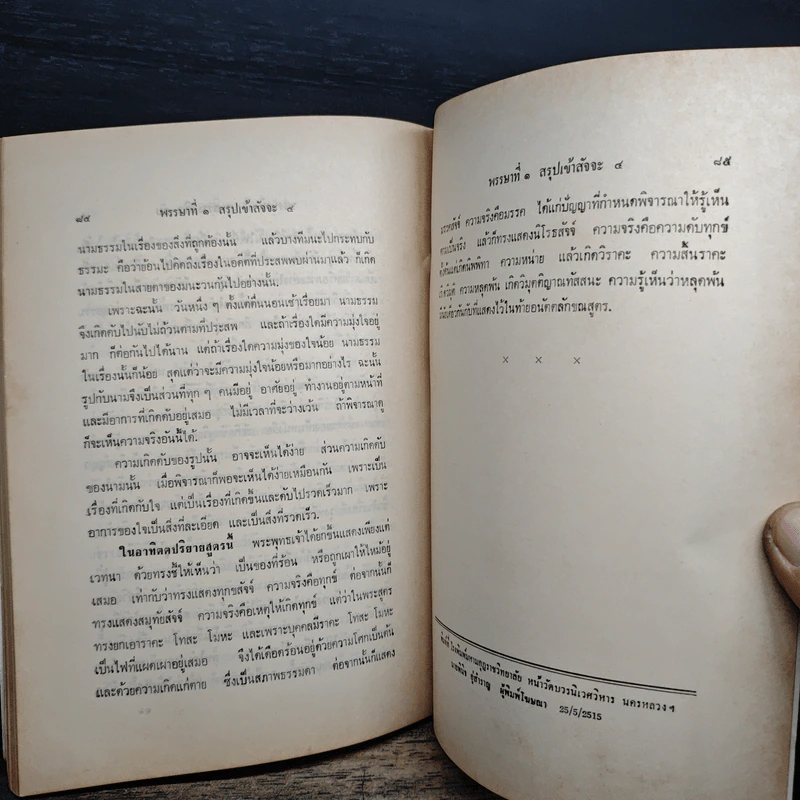 ๘๔ พรรษาที่ ๑ สรุปเข้าสัจจะ ๔
นามธรรมในเรื่องของสิ่งที่ถูกต้องนั้น แล้วบางทีมนะไปกระทบกับ
ธรรมะ คือว่าย้อนไปคิดถึงเรื่องในอดีตที่ประสพพบผ่านมาแล้ว ก็เกิด
นามธรรมในสายตาของมนะวนกันไปอย่างนั้น.
เพราะฉะนั้น วันหนึ่ง ๆ ตั้งแต่ตื่นนอนเช้าเรื่อยมา นามธรรม
จึงเกิดดับไปนับไม่ถ้วนตามที่ประสพ และถ้าเรื่องใดมีความมุ่งใจอยู่
มาก ก็ต่อกันไปได้นาน แต่ถ้าเรื่องใดความมุ่งของใจน้อย นามธรรม
ในเรื่องนั้นก็น้อย สุดแต่ว่าจะมีความมุ่งใจน้อยหรือมากอย่างไร ฉะนั้น
รูปกับนามจึงเป็นส่วนที่ทุก ๆ คนมีอยู่ อาศัยอยู่ ทำงานอยู่ตามหน้าที่
และมีอาการที่เกิดดับอยู่เสมอ ไม่มีเวลาที่จะว่างเว้น ถ้าพิจารณาดู
ก็จะเห็นความจริงอันนี้ได้.
ความเกิดดับของรูปนั้น อาจจะเห็นได้ง่าย ส่วนความเกิดดับ
ของนามนั้น เมื่อพิจารณาก็พอจะเห็นได้ง่ายเหมือนกัน เพราะเป็น
เรื่องที่เกิดกับใจ แต่เป็นเรื่องที่เกิดขึ้นและดับไปรวดเร็วมาก เพราะ
อาการของใจเป็นสิ่งที่ละเอียด และเป็นสิ่งที่รวดเร็ว.
ในอาทิตตปริยายสูตรนี้ พระพุทธเจ้าได้ยกขึ้นแสดงเพียงแค่
เวทนา ด้วยทรงชี้ให้เห็นว่า เป็นของที่ร้อน หรือถูกเผาให้ไหม้อยู่
เสมอ เท่ากับว่าทรงแสดงทุกขสัจจ์ ความจริงคือทุกข์ ต่อจากนั้นก็
ทรงแสดงสมุทัยสัจจ์ ความจริงคือเหตุให้เกิดทุกข์ แต่ว่าในพระสูตร
ทรงยกเอาราคะ โทสะ โมหะ และเพราะบุคคลมีราคะ โทสะ โมหะ
เป็นไฟที่แผดเผาอยู่เสมอ จึงได้เดือดร้อนอยู่ด้วยความโศกเป็นต้น
และด้วยความเกิดแก่ตาย ซึ่งเป็นสภาพธรรมดา ต่อจากนั้นก็แสดง
พรรษาที่ ๑ สรุปเข้าสัจจะ ๔ ๘๕
มรรคสัจจ์ ความจริงคือมรรค ได้แก่ปัญญาที่กำหนดพิจารณาให้รู้เห็น
ตามเป็นจริง แล้วก็ทรงแสดงนิโรธสัจจ์ ความจริงคือความดับทุกข์
ตั้งต้นแต่เกิดนิพพิทา ความหน่าย แล้วเกิดวิราคะ ความสิ้นราคะ
เกิดวิมุติ ความหลุดพ้น เกิดวิมุตติญาณทัสสนะ ความรู้เห็นว่าหลุดพ้น
เช่นเดียวกันกับที่แสดงไว้ในท้ายอนัตตลักขณสูตร.
× × ×
พิมพ์ที่ โรงพิมพ์มหามกุฏราชวิทยาลัย หน้าวัดบวรนิเวศวิหาร นครหลวงฯ
ผู้พิมพ์โฆษณา 25/5/2515